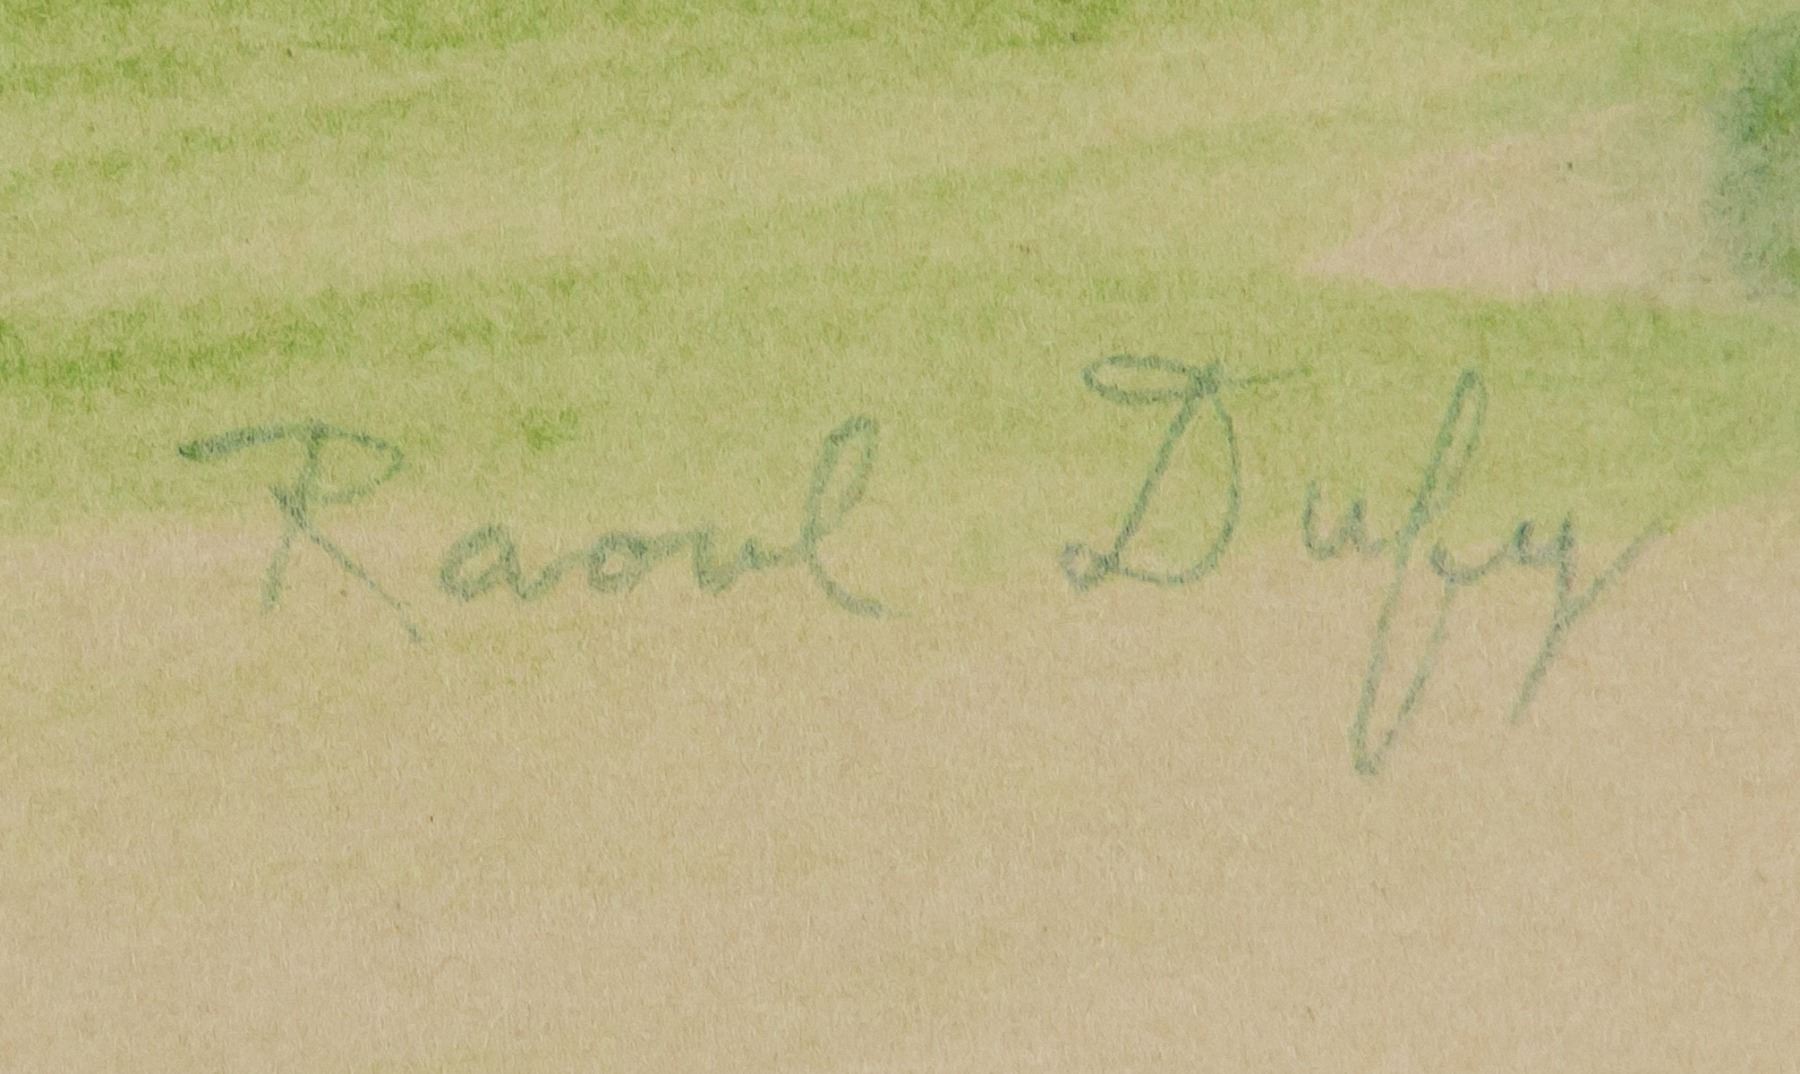 Raoul Dufy